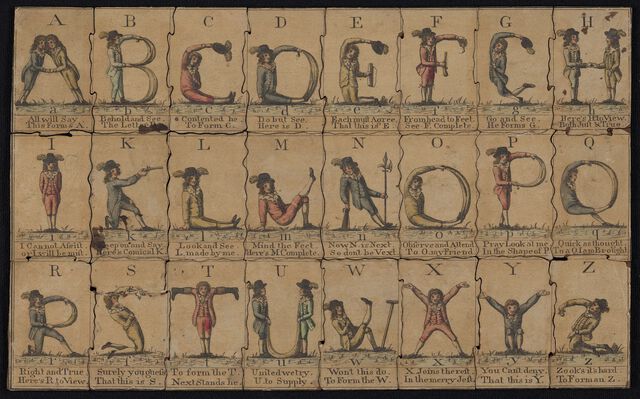 A B C D E F G H
a b c d e f g h
All will Say
This forms A.
Behold and See
The Letter
Contented he
To Form C.
Do but See
Here is D.
Each must Agree,
That this is E.
From head to Feet
See F. Complete.
Go and See.
He Forms G.
Here's H to View.
Both Just & True.
I K L M N O P Q
i k l m n o p q
I Cannot Assist
or I will be mist.
Keep on and Say
Here's Comical K.
Look and See
L. made by me.
Mind the Feet
Here's M Complete.
Now N. is Next
So dont be Vext
Observe and Attend
To O. my Friend
Pray Look at me
In the Shape of P.
Quick as thought
To a Q. I am Brought
R S T U W X Y Z
r s t u w x y z
Right and True
Here's R to View.
Surely you guess
That this is S.
To form the T.
Next Stands he.
United we try.
U. to Supply.
Wont this do.
To Form the W.
X. Joins the rest
In the merry Jest.
You Cant deny.
That this is Y.
Zook's its hard
To Form an Z.